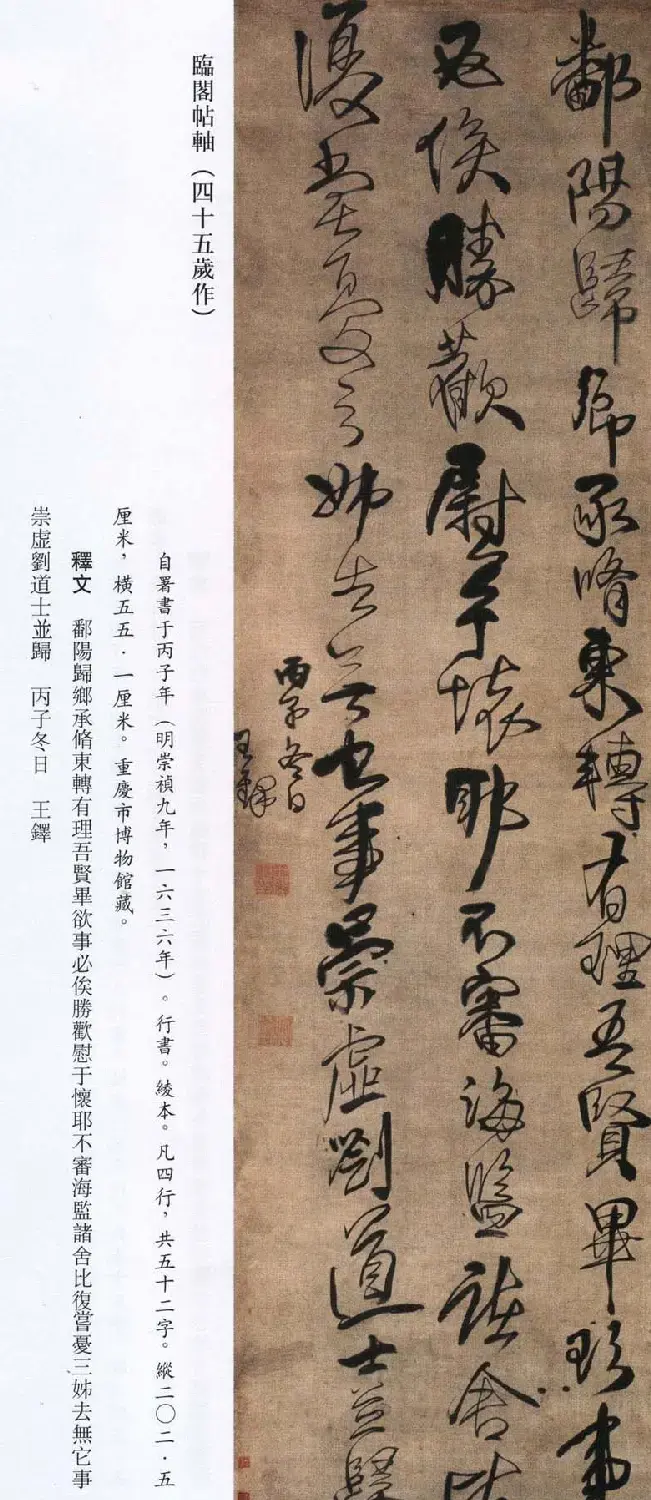 鄱陽歸鄉承脩東轉有理吾賢畢欲事
必俟勝歡慰于懷耶不審海監諸舍比
復當憂三姊去無它事崇虛劉道士並歸
丙子冬日
王鐸
臨閣帖軸（四十五歲作）
自署書于丙子年（明崇禎九年，一六三六年）。行書。綾本。凡四行，共五十二字。縱二〇二·五
厘米，橫五五·一厘米。重慶市博物館藏。
釋文　鄱陽歸鄉承脩東轉有理吾賢畢欲事必俟勝歡慰于懷耶不審海監諸舍比復嘗憂三姊去無它事
崇虛劉道士並歸　丙子冬日　王鐸